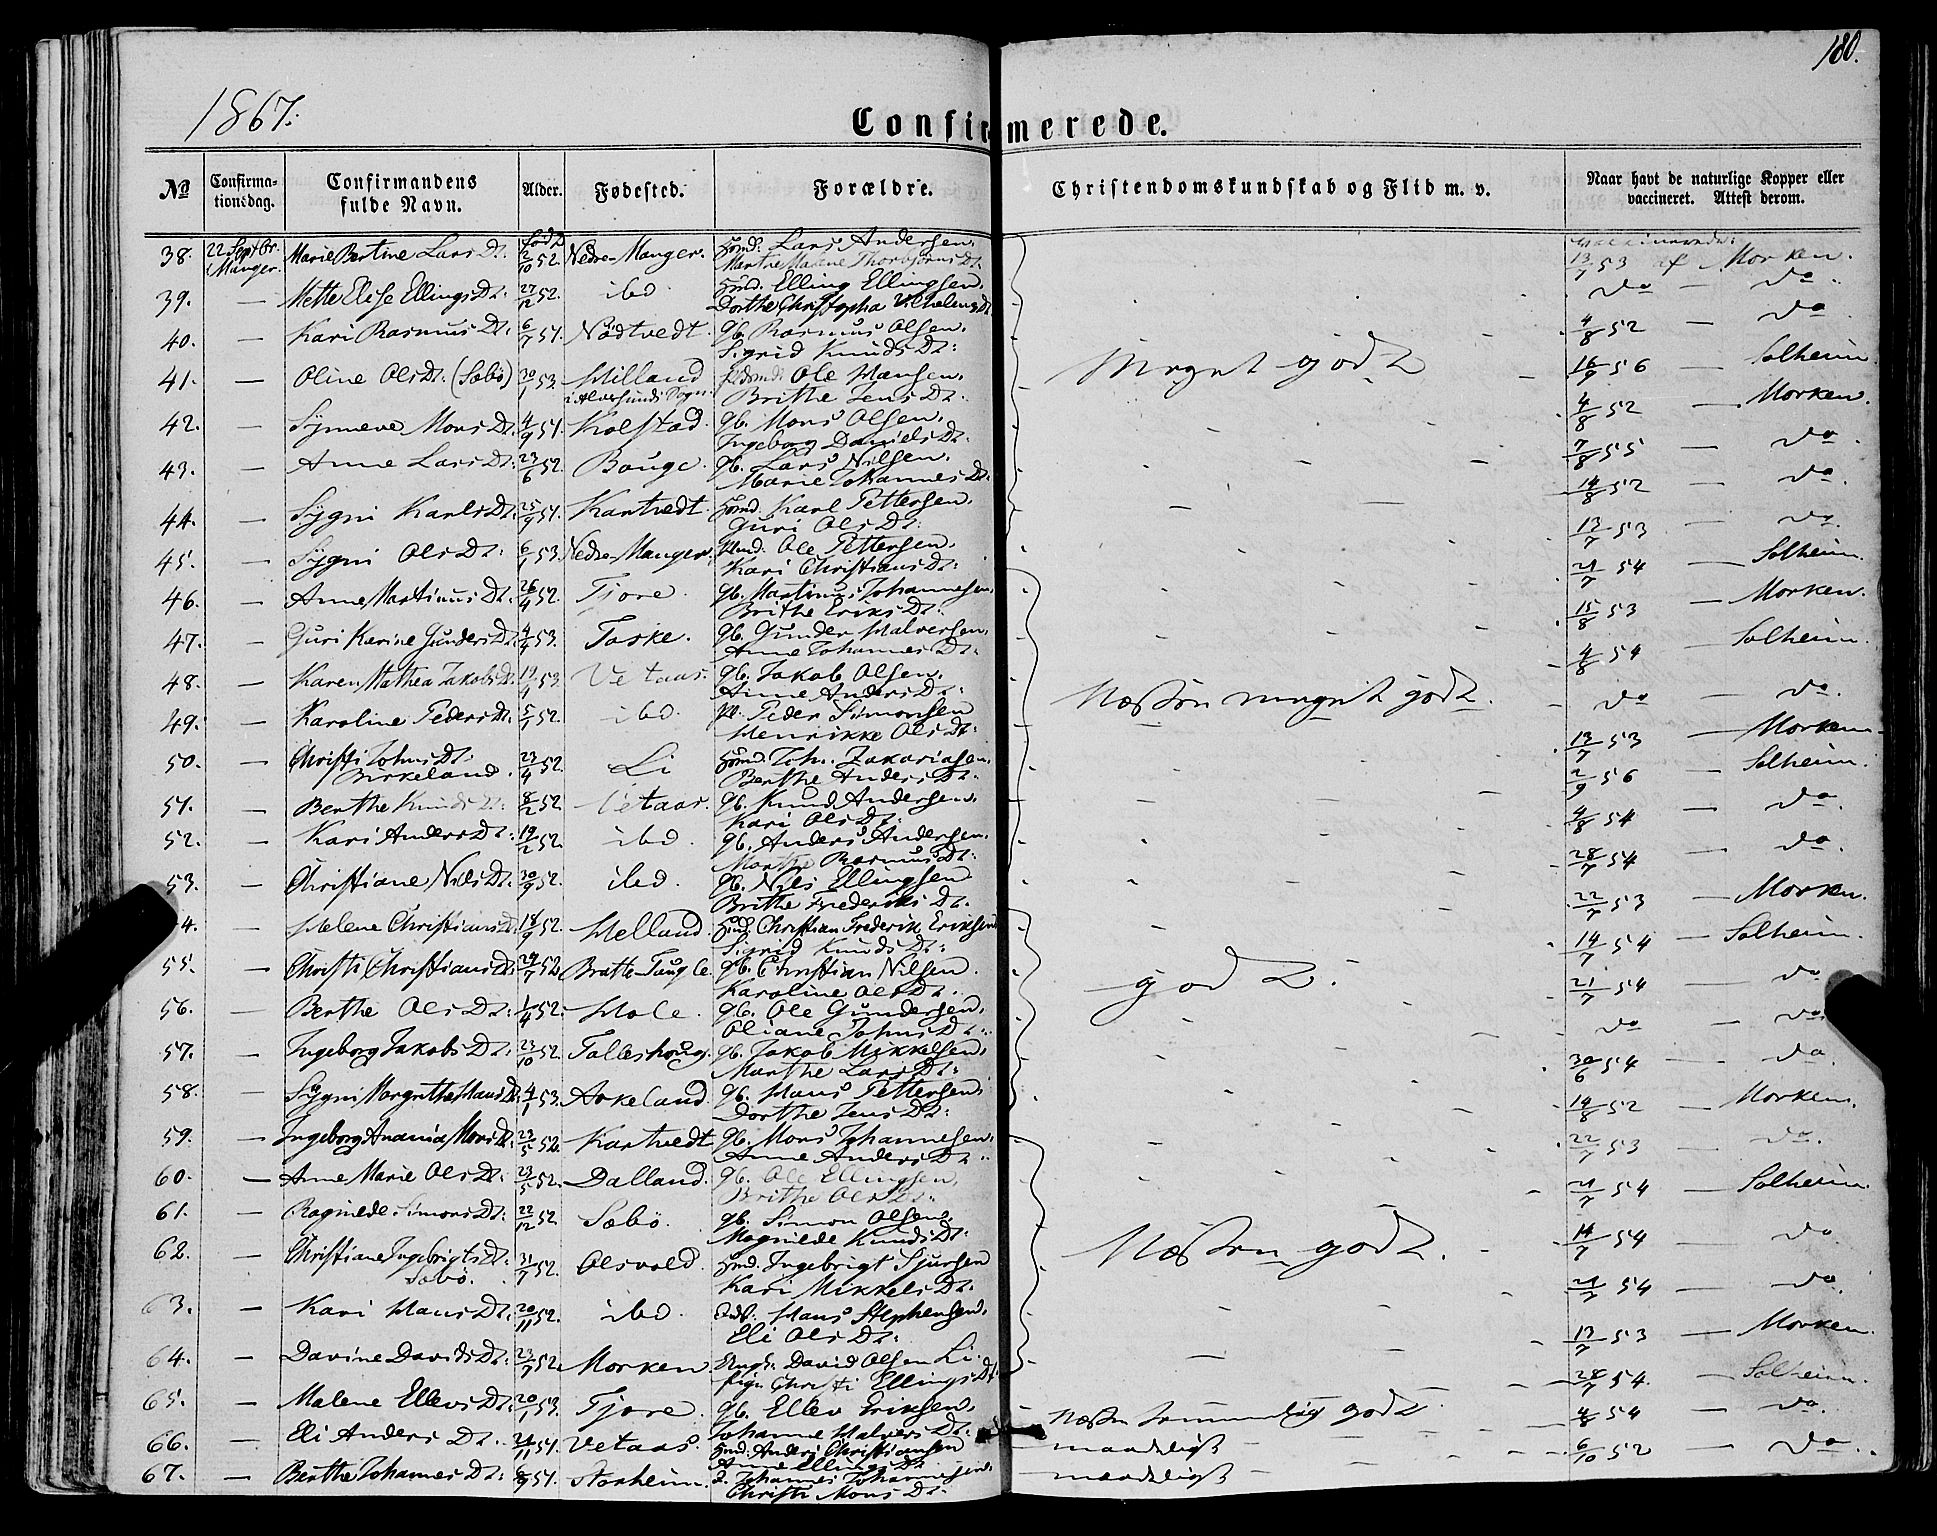 180.
1867.
Confirmerede.
No Confirmationsdag. Confirmandens fulde Navn. Alder. Fødested. Forældre. Christendomskundskab og Flid m. v. Naar havt de naturlige Kopper eller vaccineret. Attest derom.
38. 22 Septbr. Manger. Marie Bertine Lars Dt. født 2/10 52. Nedre-Manger. Hmd: Lars Andersen. Marthe Malene Thorbjørns Dt. vaccinerede: 13/7 53 af Morken.
39. — Mette Elise Ellings Dt. 27/12 52. ibd. Hmd. Elling Ellingsen. Dorthe Christopha Vilhelms Dt. do — do.
40. — Kari Rasmus Dt. 6/7 51. Nödtvedt. Gb. Rasmus Olsen. Sigrid Knuds Dt: 4/8 52 — do
41. — Oline Ols Dt. (Sæbö) 30/1 53. Hilland i Alversunds Sogn. Ole Hansen. Brithe Jens Dt. Meget godt 16/9 56 — Solheim
42. — Synneve Mons Dt. 4/9 51. Kolstad. Gb. Mons Olsen. Ingeborg Daniels Dt. 4/8 52 — Morken.
43. — Anne Lars Dt. 23/6 52. Bauge. Gb. Lars Nilsen. Marie Johannes Dt. 7/8 55 — do.
44. — Sygni Karls Dt. 25/9 51. Kartvedt. Hmd. Karl Pettersen. Guri Ols Dt. 14/8 52 — do.
45. — Sygni Ols Dt. 6/1 53. Nedre-Manger. Pmd. Ole Pettersen. Kari Christians Dt. 13/7 53 — do.
46. — Anne Martinus Dt. 26/4 52. Tjore. Gb. Martinus Johannesen. Brithe Eriks Dt. 21/7 54 — Solheim.
47. — Guri Karine Gunders Dt. 4/4 53. Toske. Gb. Gunder Halversen. Anne Johannes Dt. 15/8 53 — Morken.
48. — Karen Mathea Jakobs Dt. 19/4 53. Vetaas. Gb. Jakob Olsen. Anne Anders Dt. Næsten meget godt. 4/8 54 — Solheim.
49. — Karoline Peders Dt. 5/1 52. ibd. Peder Simonsen Henrikke Ols Dt. do — do.
50. — Christi Johns Dt. Birkeland. 23/4 52. Li Hmd. Joh. Zakariasen. Berthe Anders Dt. 13/7 53 — Morken.
51. — Berthe Knuds Dt. 8/2 52. Vetaas. Gb. Knud Andersen. Kari Ols Dt. 2/9 56 — Solheim.
52. — Kari Anders Dt. 19/2 52. ibd. Gb. Anders Andersen. Marthe Rasmus Dt. 4/8 54 — do.
53. — Christiane Nils Dt. 30/9 52. ibd. Gb. Nils Ellingsen Brithe Frederiks Dt. 28/7 54 — do.
4. — Helene Christians Dt. 18/9 52. Helland. Hmd. Christian Frederik Eriksen Sigrid Knuds Dt. 22/7 53 — Morken.
55. — Christi Christians Dt. 29/7 52. Bratte-Taugle. Gb. Christian Nilsen. Karoline Ols Dt. godt. 14/7 54 — Solheim.
56. — Berthe Ols Dt. 1/4 52. Hole. Gb. Ole Gundersen. Oliane Johns Dt. 21/7 54 — do
57. — Ingeborg Jakobs Dt. 23/10 52. Tolleshoug. Gb. Jakob Mikkelsen. Marthe Lars Dt. do — do
58. — Sygni Margrethe Hans Dt. 4/1 53. Askeland Gb. Hans Pettersen. Dorthe Jens Dt. 30/6 54 — do
59. — Ingeborg Anania Mons Dt. 23/5 52. Kartvedt Gb. Mons Johannesen. Anne Anders Dt. 14/8 52 — Morken.
60. — Anne Marie Ols Dt. 23/5 52. Dalland. Gb. Ole Ellingsen. Brithe Ols Dt. 22/7 53 — do.
61. — Ragnilde Simons Dt. 22/12 52. Sæbö. Gb. Simon Olsen. Magnilde Knuds Dt. 21/7 54 — Solheim.
62. — Christiane Ingebrigts Dt. Sæbö. 31/7 52. Olsvold. Hmd. Ingebrigt Sjursen Kari Mikkels Dt. Næsten godt. 14/7 54 — do
63. — Kari Hans Dt. 20/11 52. ibd. Hans Stephensen. Eli Ols Dt. 21/7 54 — do
64. — Davine Davids Dt. 23/7 52. Morken. Ungk. David Olsen Li. Pige Christi Ellings Dt. 13/7 53 — Morken.
65. — Malene Ellevs Dt. 20/1 53. Tjore. Gb. Ellev Eriksen. Johanne Halvers Dt. Næsten temmelig godt 28/7 54. — Solheim.
66. — Eli Anders Dt. 21/11 51. Vetaas. Hmd. Anders Christiansen Anne Ellings Dt. maadeligt 4/8 54 — do.
67. — Berthe Johannes Dt. 8/9 51. Storheim. Johannes Johannesen. Christi Mons Dt. maadeligt 6/10 52 — do.